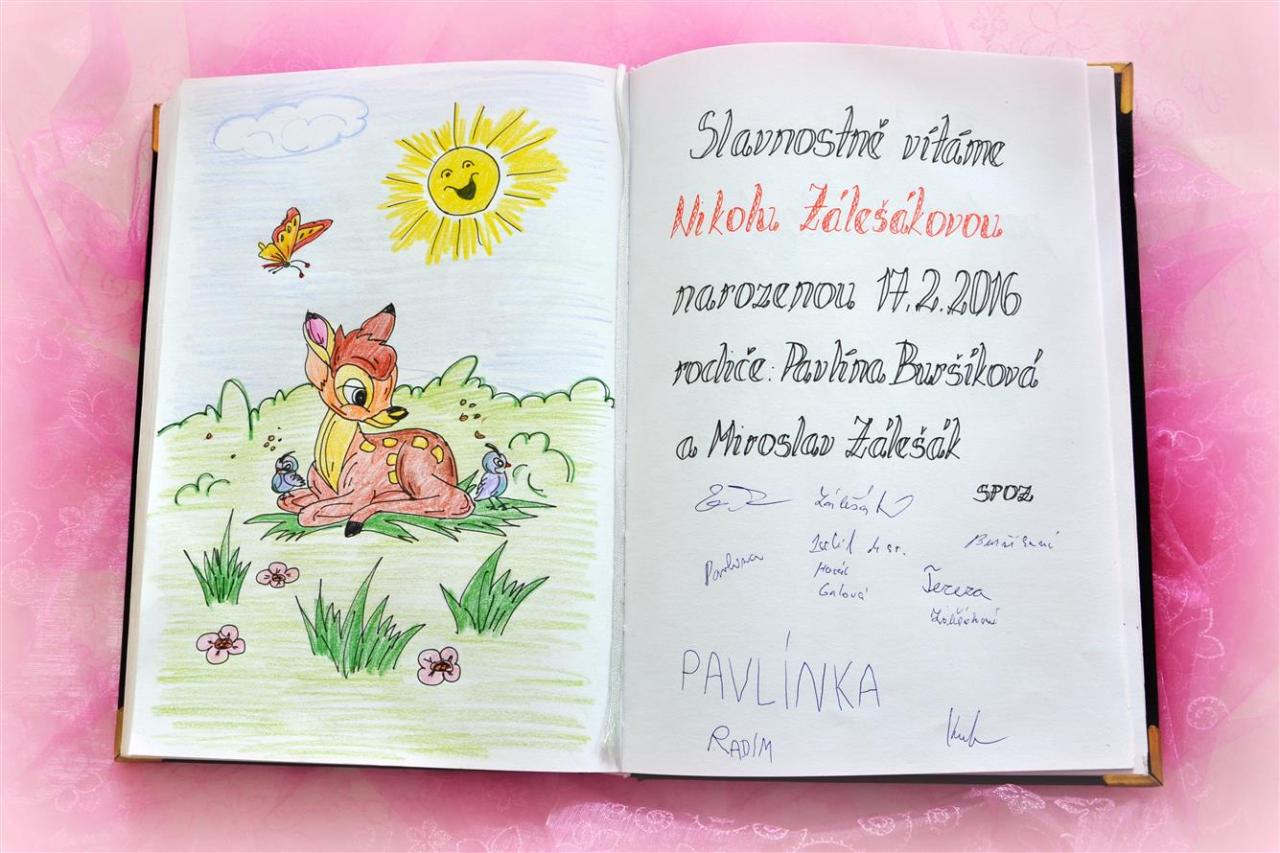 Slavnostně vítáme
Nikolu Zálešákovou
narozenou 17.2.2016
rodiče: Pavlína Buršíková
a Miroslav Zálešák
SPOZ
Zálešák
Pavlína
Galová
Tereza
Zálešáková
PAVLÍNKA
RADIM